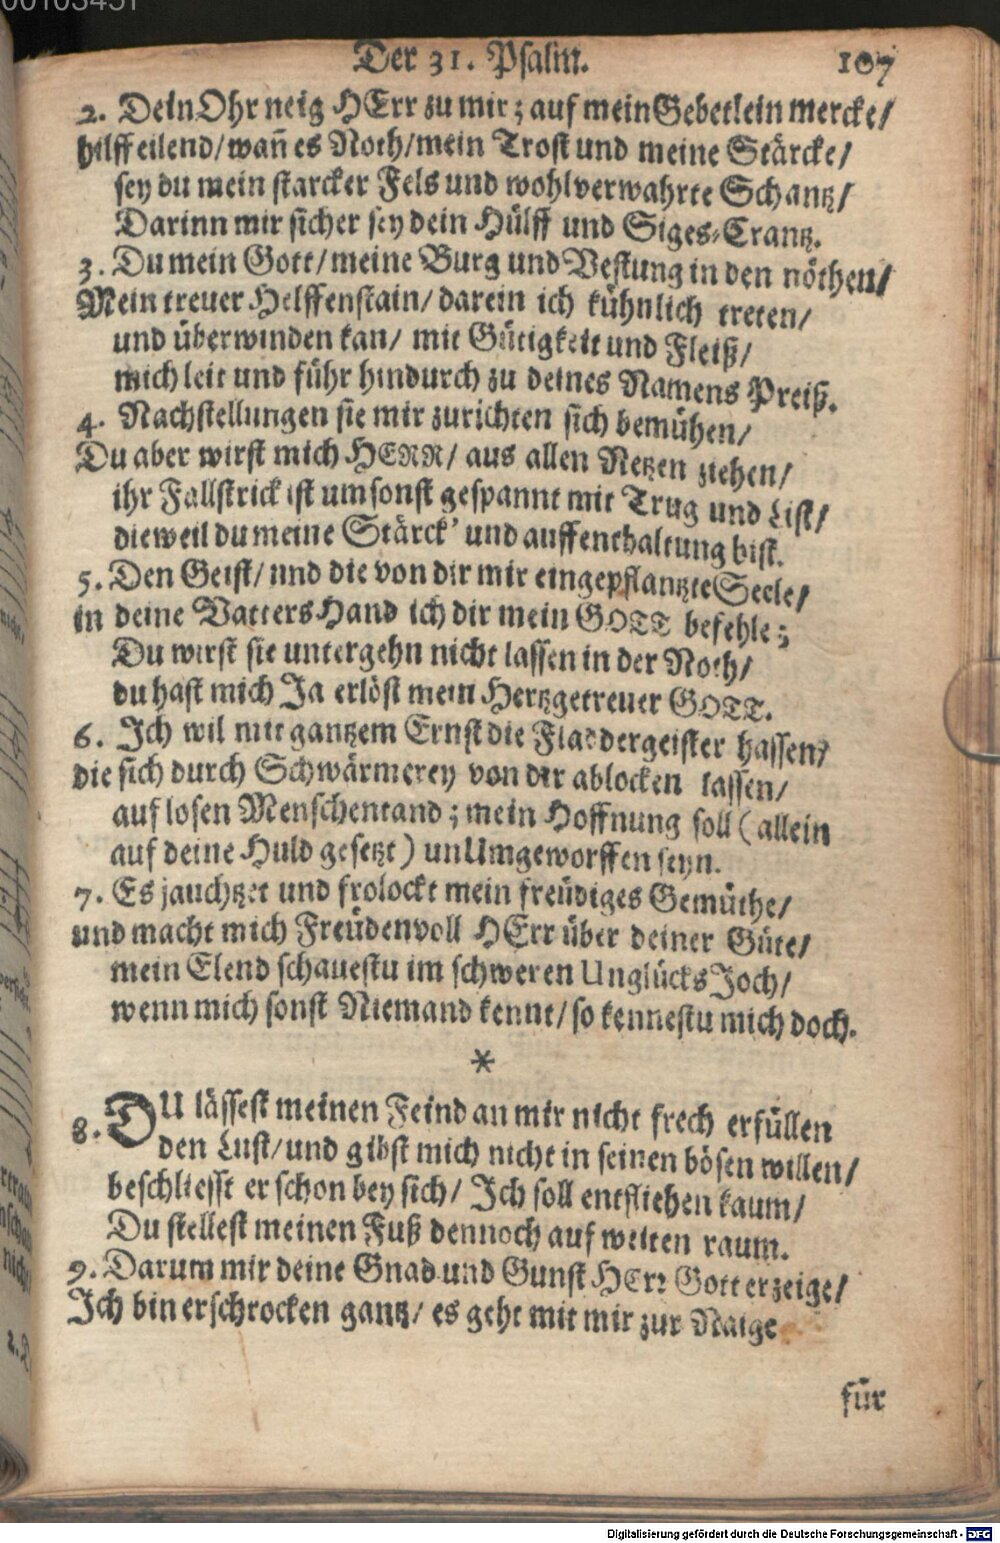 Der 31. Psalm. 107
2. Dein Ohr neig HErr zu mir; auf mein Gebetlein mercke/
hilff eilend/ wañ es Noth/ mein Trost und meine Stärcke/
sey du mein starcker Fels und wohlverwahrte Schantz/
Darinn mir sicher sey dein Hülff und Siges-Crantz.
3. Du mein Gott/ meine Burg und Vestung in den nöthen/
Mein treuer Helffenstain/ darein ich kühnlich treten/
und überwinden kan/ mit Gütigkeit und Fleiß/
mich leit und führ hindurch zu deines Namens Preiß.
4. Nachstellungen sie mir zurichten sich bemühen/
Du aber wirst mich HERR/ aus allen Netzen ziehen/
ihr Fallstrick ist umsonst gespannt mit Trug und List/
dieweil du meine Stärck' und auffenthaltung bist.
5. Den Geist/ und die von dir mir eingepflantzte Seele/
in deine Vatters Hand ich dir mein GOTT befehle;
Du wirst sie untergehn nicht lassen in der Noth/
du hast mich Ja erlöst mein Hertzgetreuer GOTT.
6. Ich wil mit gantzem Ernst die Fladdergeister hassen/
die sich durch Schwärmerey von dir ablocken lassen/
auf losen Menschentand; mein Hoffnung soll (allein
auf deine Huld gesetzt) unUmgeworffen seyn.
7. Es jauchtzet und frolockt mein freüdiges Gemüthe/
und macht mich Freüdenvoll HErr über deiner Güte/
mein Elend schauestu im schweren Unglücks Joch/
wenn mich sonst Niemand kennt/ so kennestu mich doch.
*
8. DU lässest meinen Feind an mir nicht frech erfüllen
den Lust/ und gibst mich nicht in seinen bösen willen/
beschliesst er schon bey sich/ Ich soll entfliehen kaum/
Du stellest meinen Fuß dennoch auf weiten raum.
9. Darum mir deine Gnad und Gunst HErr Gott erzeige/
Ich bin erschrocken gantz/ es geht mit mir zur Naige
für
Digitalisierung gefördert durch die Deutsche Forschungsgemeinschaft - DFG